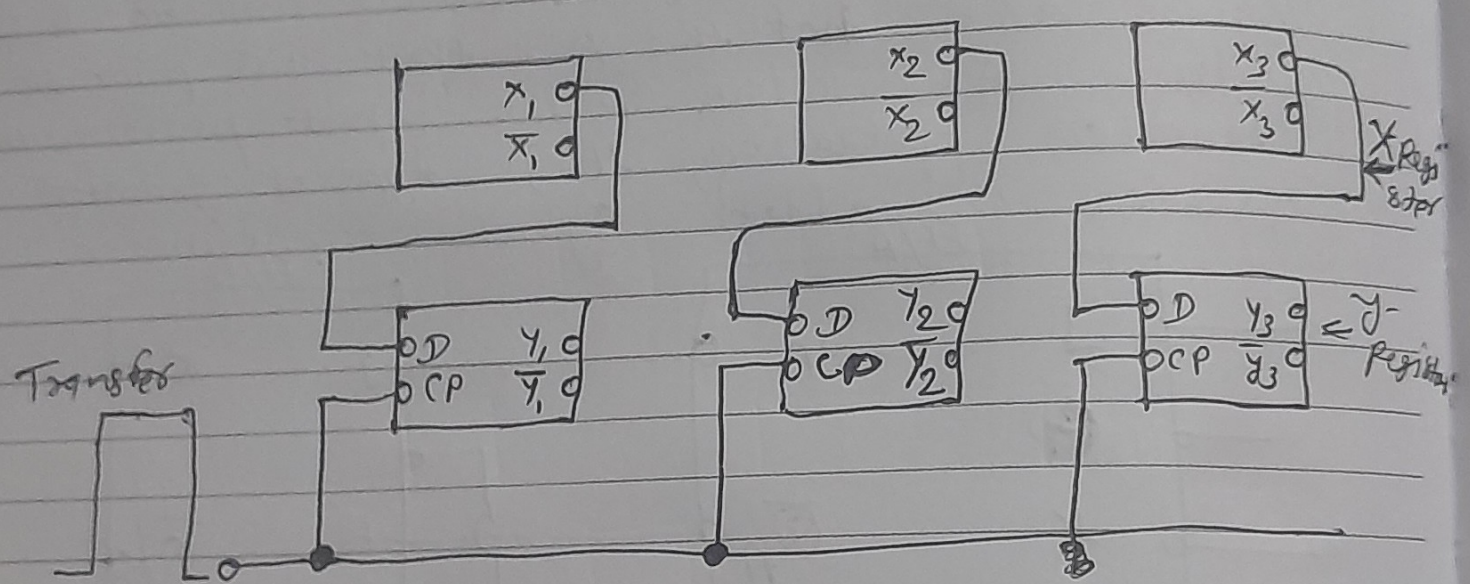 X₁
X̅₁
X₂
X̅₂
X₃
X̅₃
X Regi
ster
D Y₁
CP Y̅₁
D Y₂
CP Y̅₂
D Y₃
CP Y̅₃
Y-
Register
Transfer